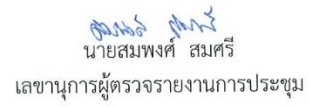 นายสมพงศ์ สมศรี
เลขานุการผู้ตรวจรายงานการประชุม